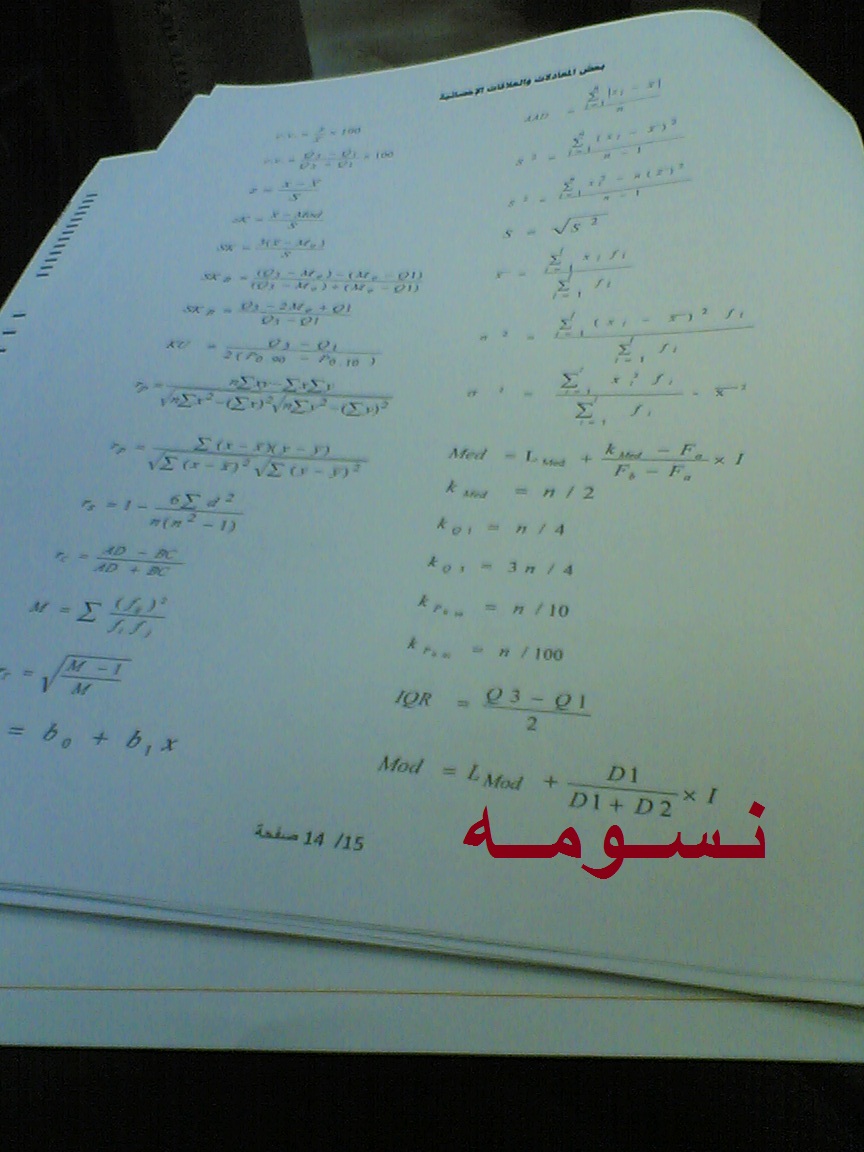 بعض المعادلات والعلاقات الإحصائية
AAD = \frac{\sum_{i=1}^{n} |x_i - \bar{x}|}{n}
s^2 = \frac{\sum_{i=1}^{n} (x_i - \bar{x})^2}{n - 1}
s^2 = \frac{\sum_{i=1}^{n} x_i^2 - n(\bar{x})^2}{n - 1}
s = \sqrt{s^2}
\bar{x} = \frac{\sum_{i=1} x_i f_i}{\sum_{i=1} f_i}
\frac{\sum_{i=1} (x_i - \bar{x})^2 f_i}{\sum_{i=1} f_i}
\frac{\sum_{i=1} x_i^2 f_i}{\sum_{i=1} f_i} - \bar{x}^2
Med = L_{Med} + \frac{k_{Med} - F_a}{F_b - F_a} × I
k_{Med} = n / 2
k_{Q1} = n / 4
k_{Q3} = 3n / 4
k = n / 10
k = n / 100
IQR = \frac{Q3 - Q1}{2}
Mod = L_{Mod} + \frac{D1}{D1 + D2} × I
× 100
\frac{Q3 - Q1}{Q3 + Q1} × 100
z = \frac{x - \bar{x}}{S}
SK = \frac{\bar{x} - Mod}{S}
SK = \frac{3(\bar{x} - M_e)}{S}
SK_B = \frac{(Q3 - M_e) - (M_e - Q1)}{(Q3 - M_e) + (M_e - Q1)}
SK_B = \frac{Q3 - 2M_e + Q1}{Q3 - Q1}
KU = \frac{Q3 - Q1}{2(P_{0.90} - P_{0.10})}
r_p = \frac{n\sum xy - \sum x \sum y}{\sqrt{n\sum x^2 - (\sum x)^2} \sqrt{n\sum y^2 - (\sum y)^2}}
r_p = \frac{\sum (x - \bar{x})(y - \bar{y})}{\sqrt{\sum (x - \bar{x})^2} \sqrt{\sum (y - \bar{y})^2}}
r_s = 1 - \frac{6\sum d^2}{n(n^2 - 1)}
r_c = \frac{AD - BC}{AD + BC}
M = \sum \frac{(f_{ij})^2}{f_i f_j}
= \sqrt{\frac{M - 1}{M}}
= b_0 + b_1 x
14 /15 صفحة
نسومه